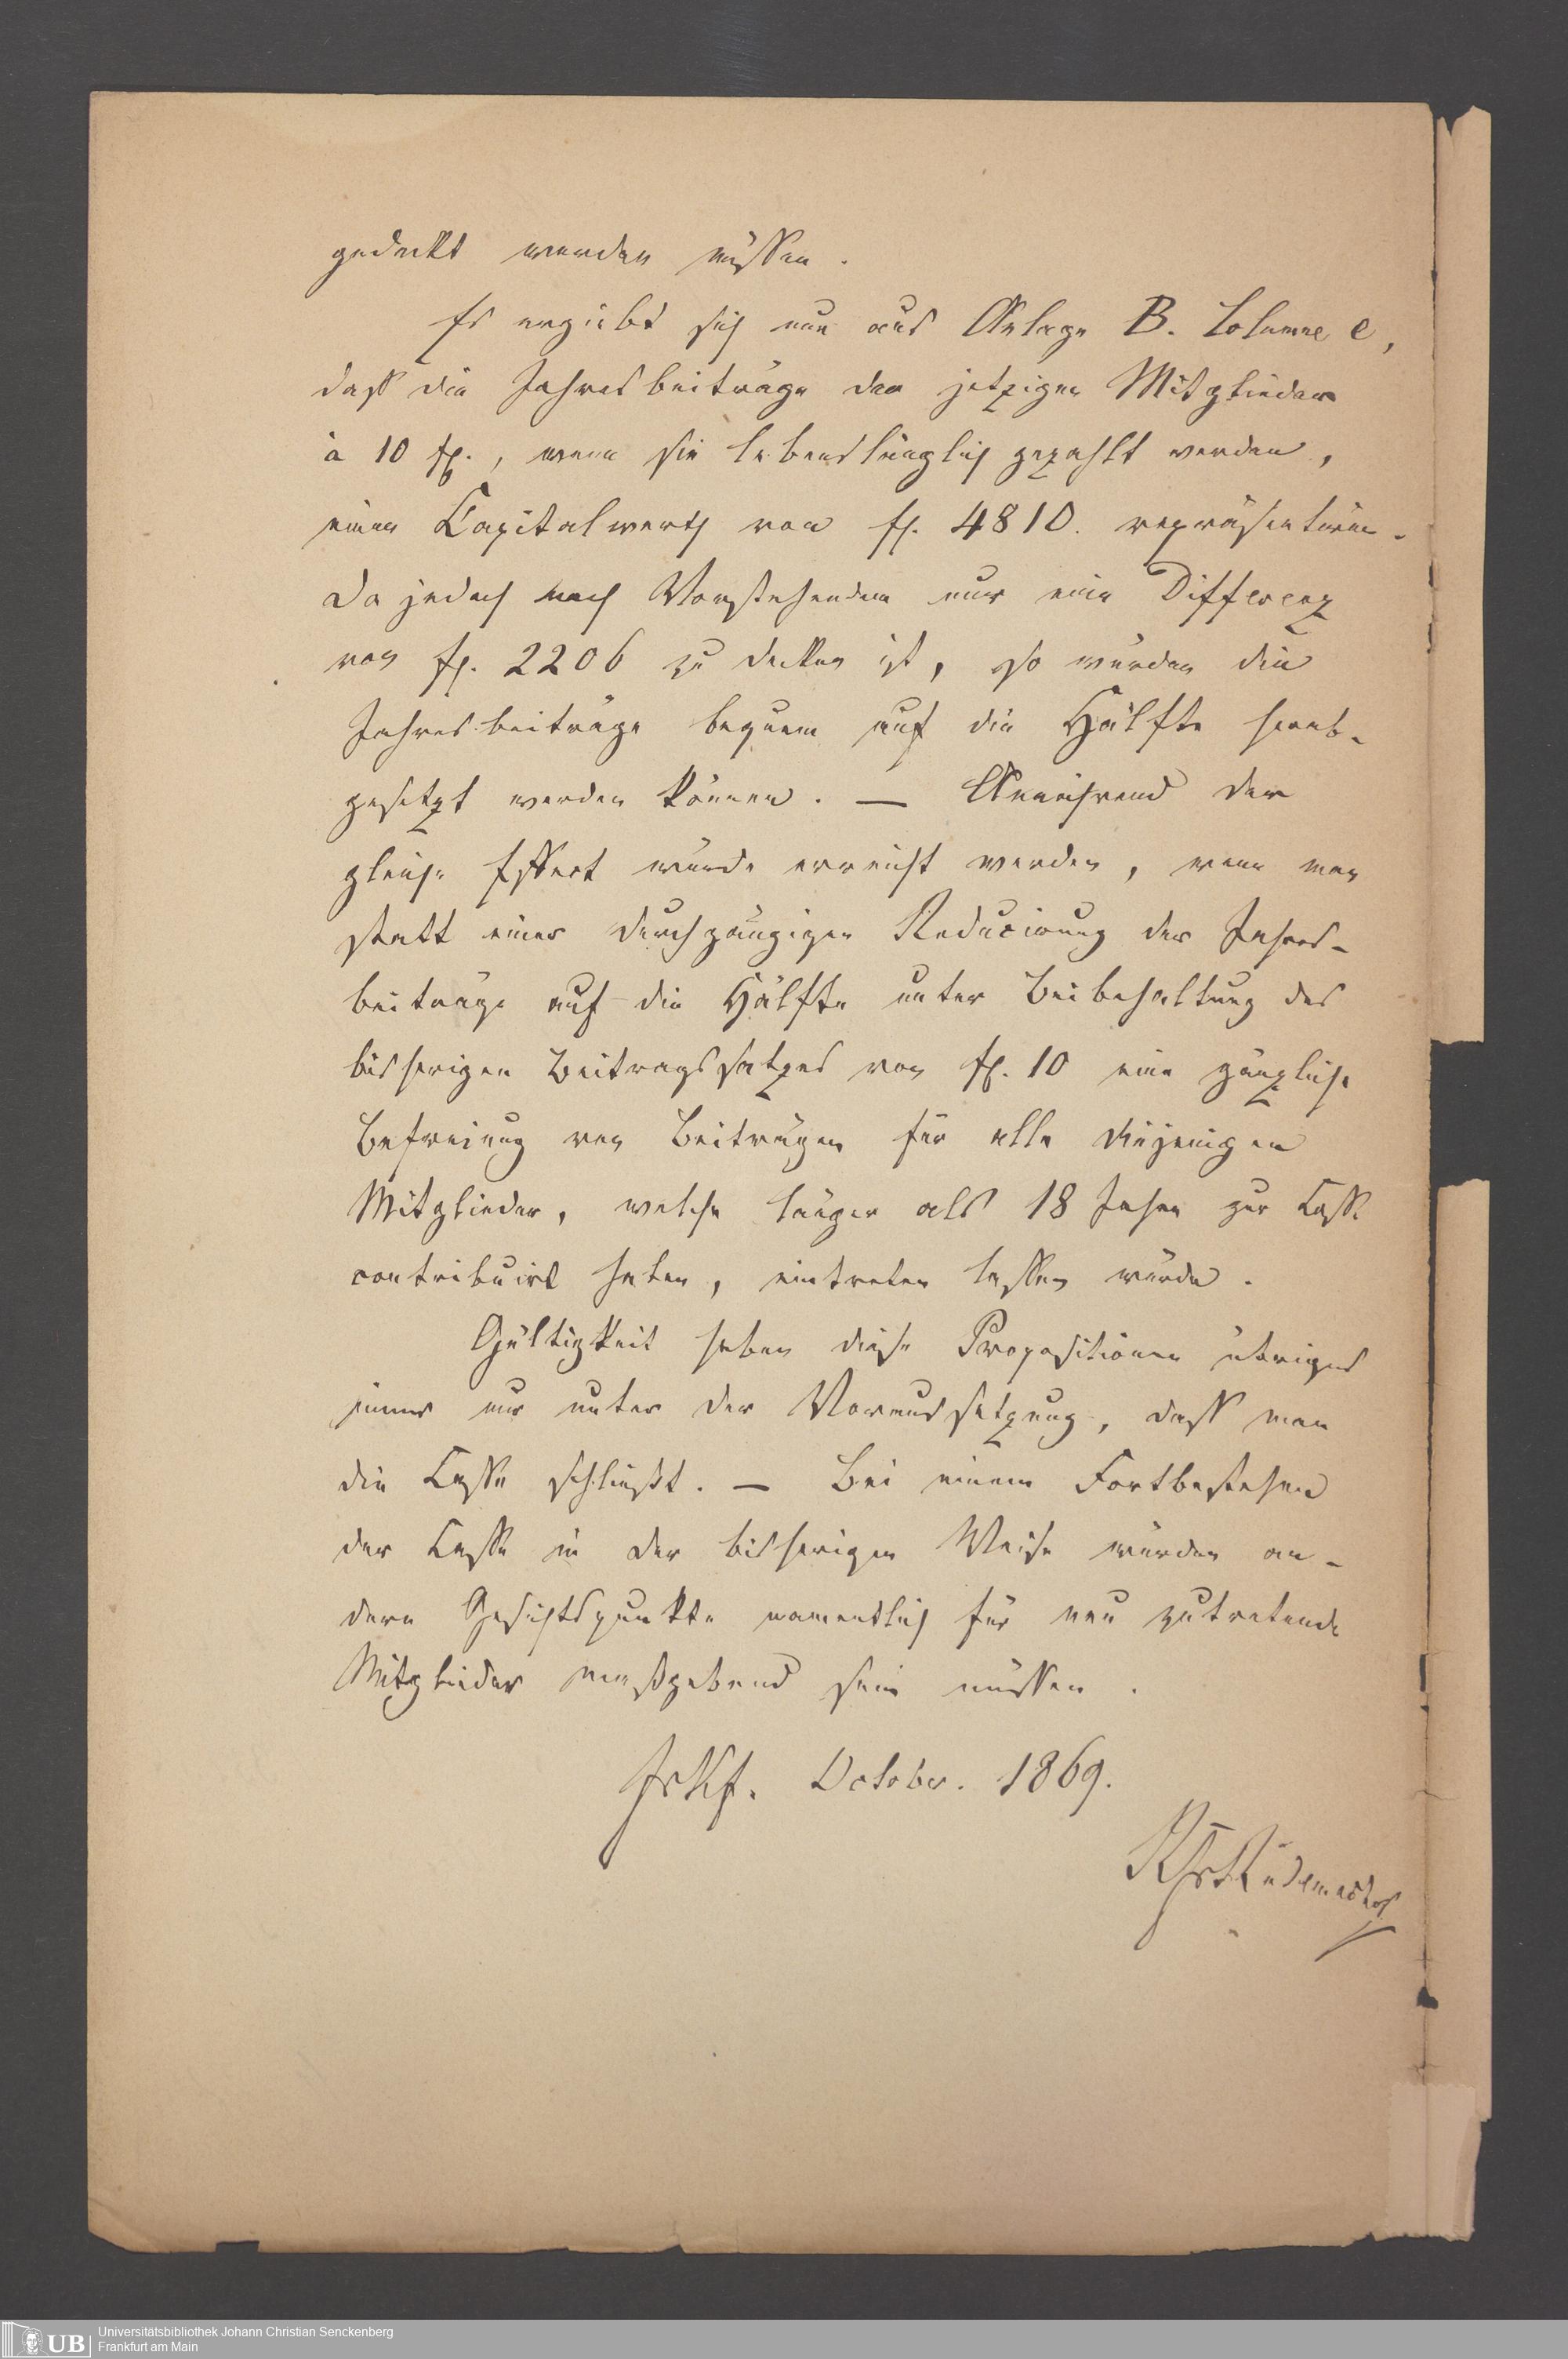 gedeckt werden müssen.
Es ergiebt sich nun aus Anlage B. Columne e,
dass die Jahresbeiträge der jetzigen Mitglieder
à 10 fl., wenn sie lebenslänglich gezahlt werden,
einen Capitalwerth von fl. 4810. repräsentiren.
Da jedoch nach Vorstehendem nur eine Differenz
von fl. 2206 zu decken ist, so würden die
Jahresbeiträge bequem auf die Hälfte herab-
gesetzt werden können. — Annähernd der
gleiche Effect würde erreicht werden, wenn man
statt einer durchgängigen Reducirung der Jahres-
beiträge auf die Hälfte unter Beibehaltung des
bisherigen Beitragssatzes von fl. 10 eine gänzliche
Befreiung von Beiträgen für alle diejenigen
Mitglieder, welche länger als 18 Jahre zur Casse
contribuirt haben, eintreten lassen würde.
Gültigkeit haben diese Propositionen übrigens
immer nur unter der Voraussetzung, dass man
die Casse schließt. — Bei einem Fortbestehen
der Casse in der bisherigen Weise würden an-
dere Gesichtspunkte namentlich für neu zutretende
Mitglieder maßgebend sein müssen.
Frkf. October. 1869.
Universitätsbibliothek Johann Christian Senckenberg
Frankfurt am Main
UB